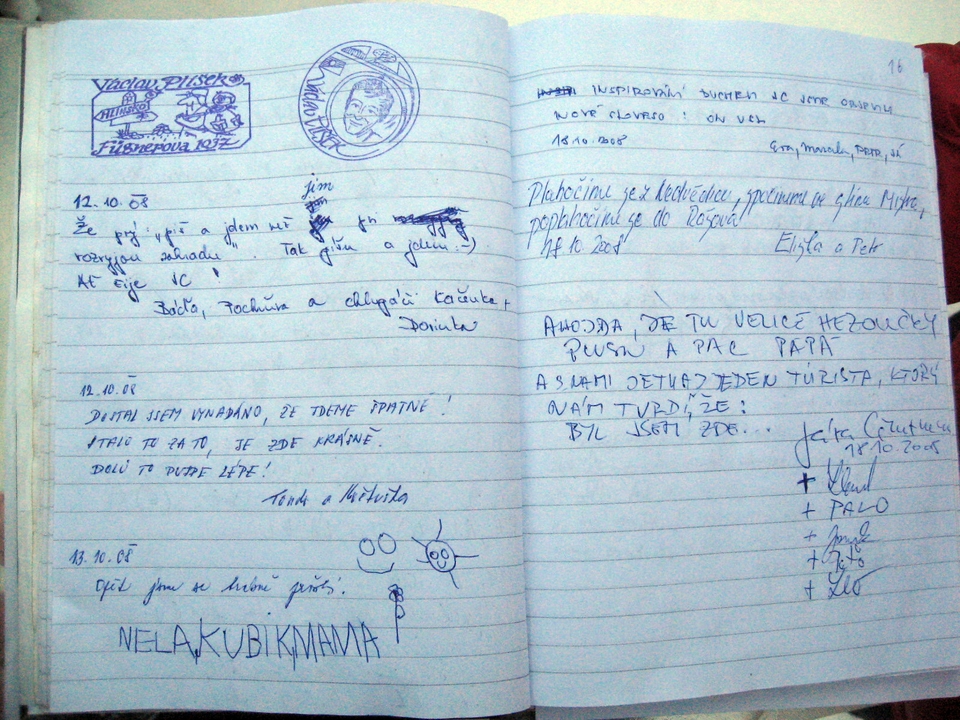 Václav Plíšek
HLINSKO
Füsnerova 1237
VÁCLAV PLÍŠEK
12.10.08
jim
Že prý: "piš a jdem než při
rozryjou zahradu". Tak píšu a jdem :-)
AŤ žije JC!
Báďa, Pochňra a Kačenka +
Dorinka
12.10.08
DOSTAL JSEM VYNADÁNO, ŽE JDEME ŠPATNĚ!
STÁLO TO ZA TO, JE ZDE KRÁSNĚ.
DOLŮ TO PŮJDE LÉPE!
Tonda a
13.10.08
Opět jsme se hrozně prošli.
NELA, KUBÍK, MAMA
16
INSPIROVÁNI DUCHEM JC JSME OBJEVILI
NOVÉ SLOVESO: ON VEN
18.10.2008
Eva, Marcela, PETR, JÁ
Plahočíme se z Nedvědice, spočinem ve stínu Mistra,
poplahočíme se do Rožové
18.10.2008
Eliška a Petr
AHOJDA, JE TU VELICE HEZOUČKY
PUSU A PAC PAPÁ
A S NAMI JE TU AJ JEDEN TÚRISTA, KTORÝ
NÁM TVRDÍ, ŽE:
BYL JSEM ZDE...
Jára Cimrman
18.10.2008
+
+ PALO
+
+
+